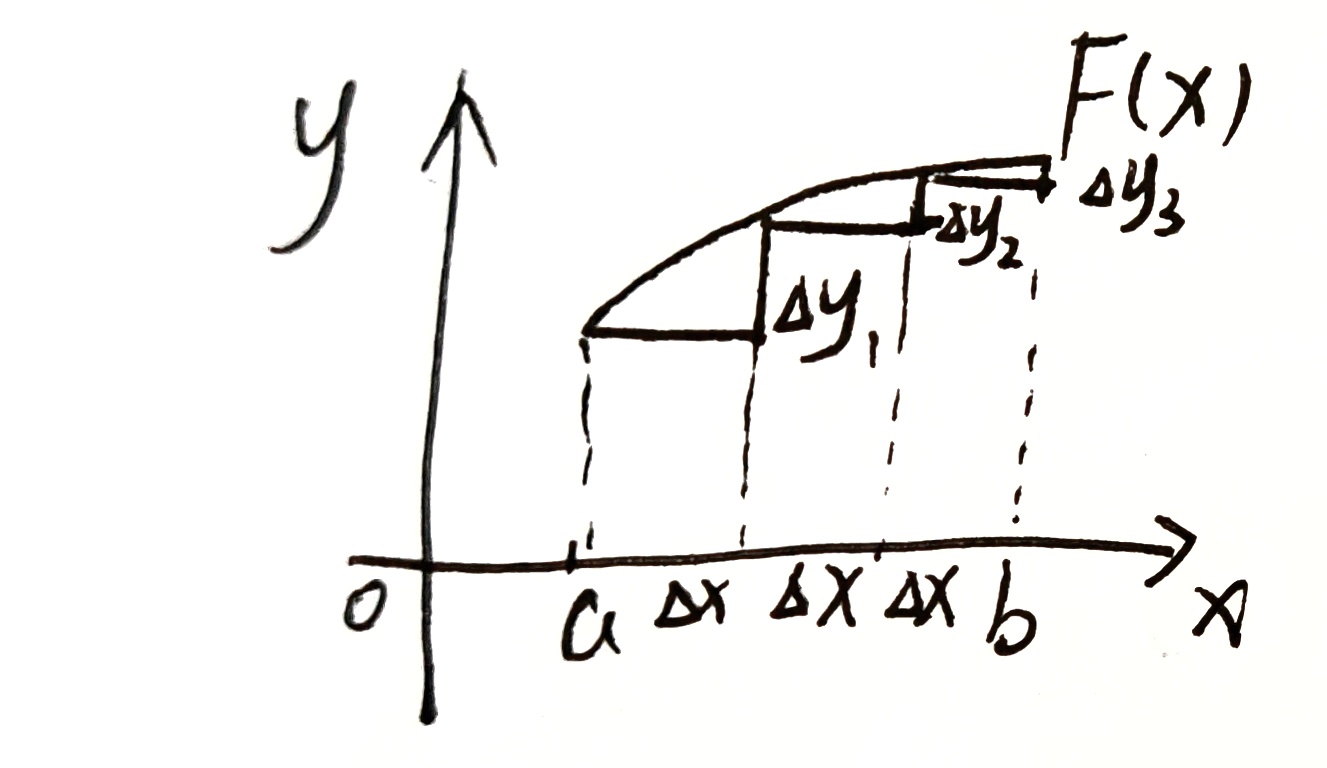 y
F(x)
Δy₃
Δy₂
Δy₁
0
a Δx Δx Δx b x